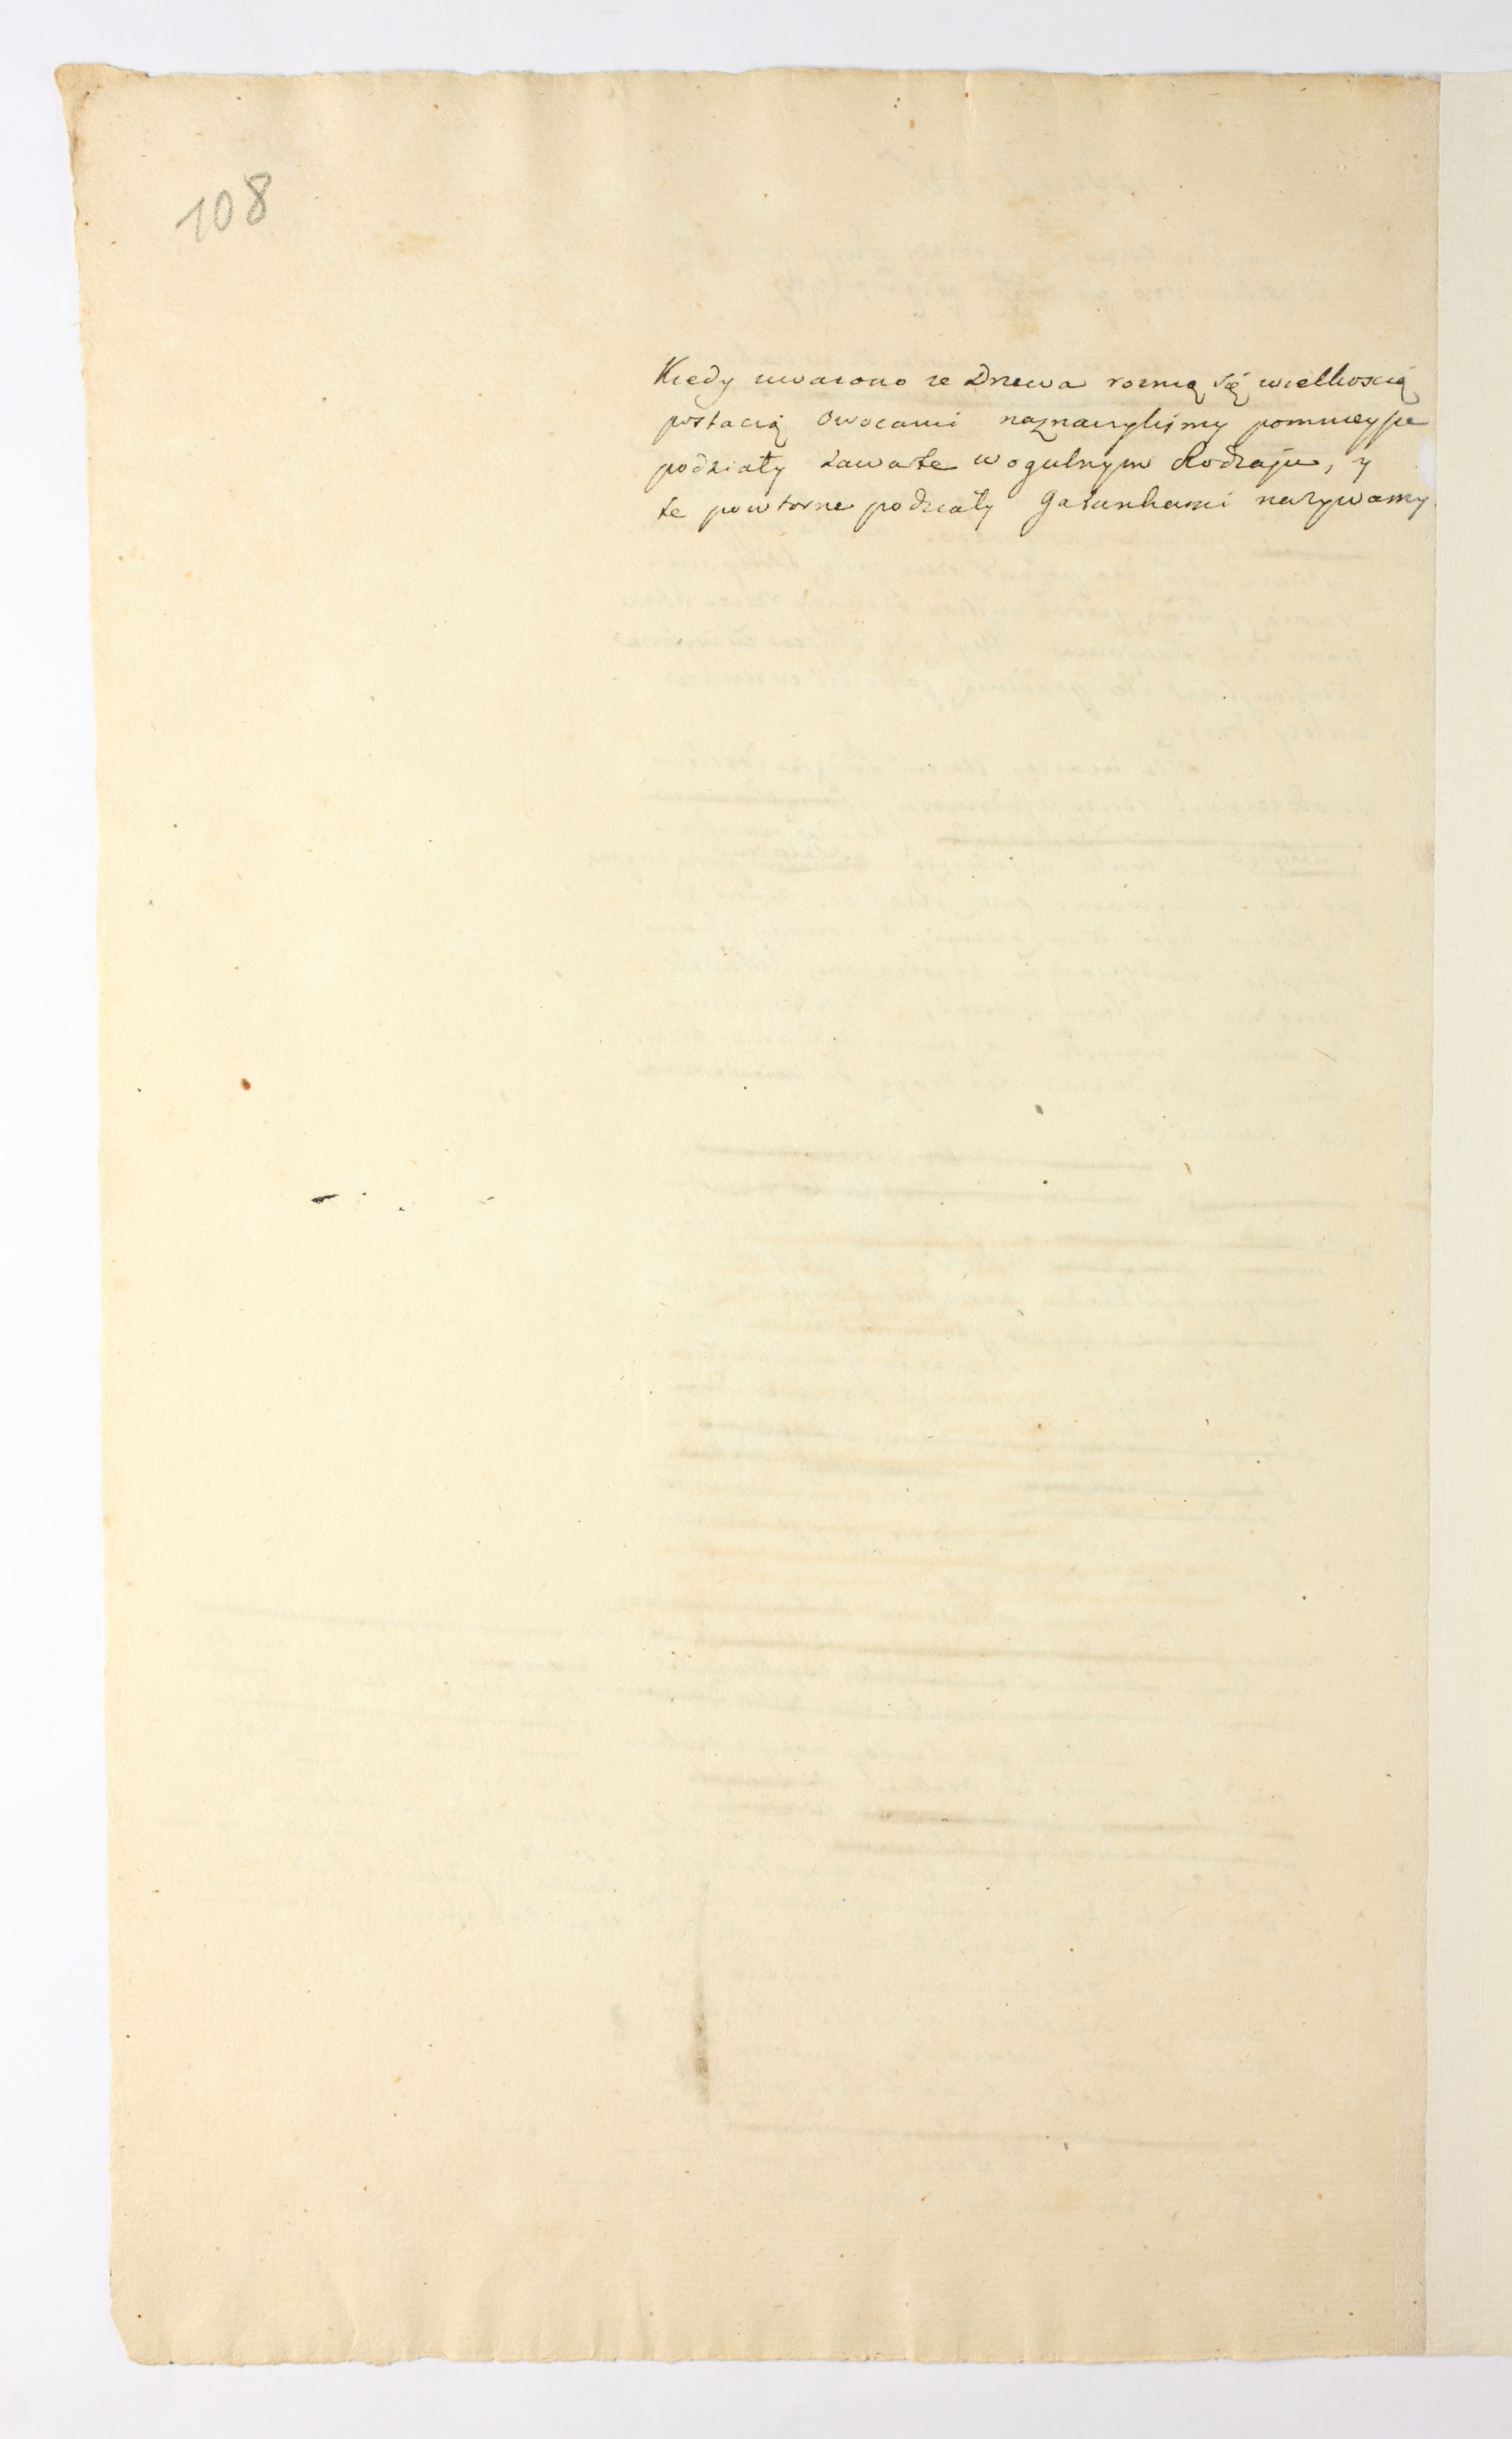 108
Kiedy uwarono ze Drzewa roznią się wielkoscią
postacią owocami naznaczylismy pomnieysze
podziały zawarte w ogulnym Rodzaju, y
te powtorne podziały Gatunkami nazywamy.